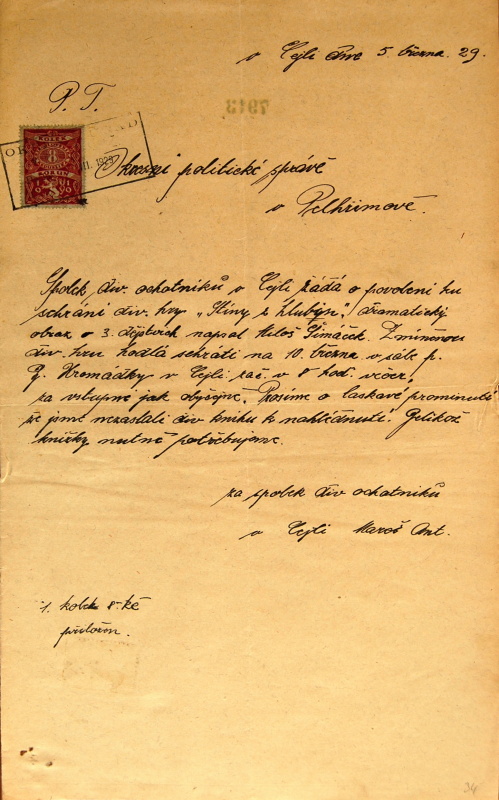 v Cejli dne 5. března. 29.
P. T.
7913
KOLEK
8
KORUN
1919
Okresní politické správě
v Pelhřimově.
Spolek div. ochotníků v Cejli žádá o povolení ku
sehrání div. hry "Stíny z hlubin", dramatický
obraz o 3. dějstvích napsal Miloš Šimáček. Zmíněnou
div. hru hodlá sehráti na 10. března v sále p.
J. Hromádky v Cejli zač. v 8 hod. večer,
za vstupné jak obyčejně. Prosíme o laskavé prominutí
že jsme nezaslali div. knihu k nahlédnutí. Jelikož
knížky nutně potřebujeme.
za spolek div. ochotníků
v Cejli Mareš Ant.
1. kolek 8. kč
přiložen.
34